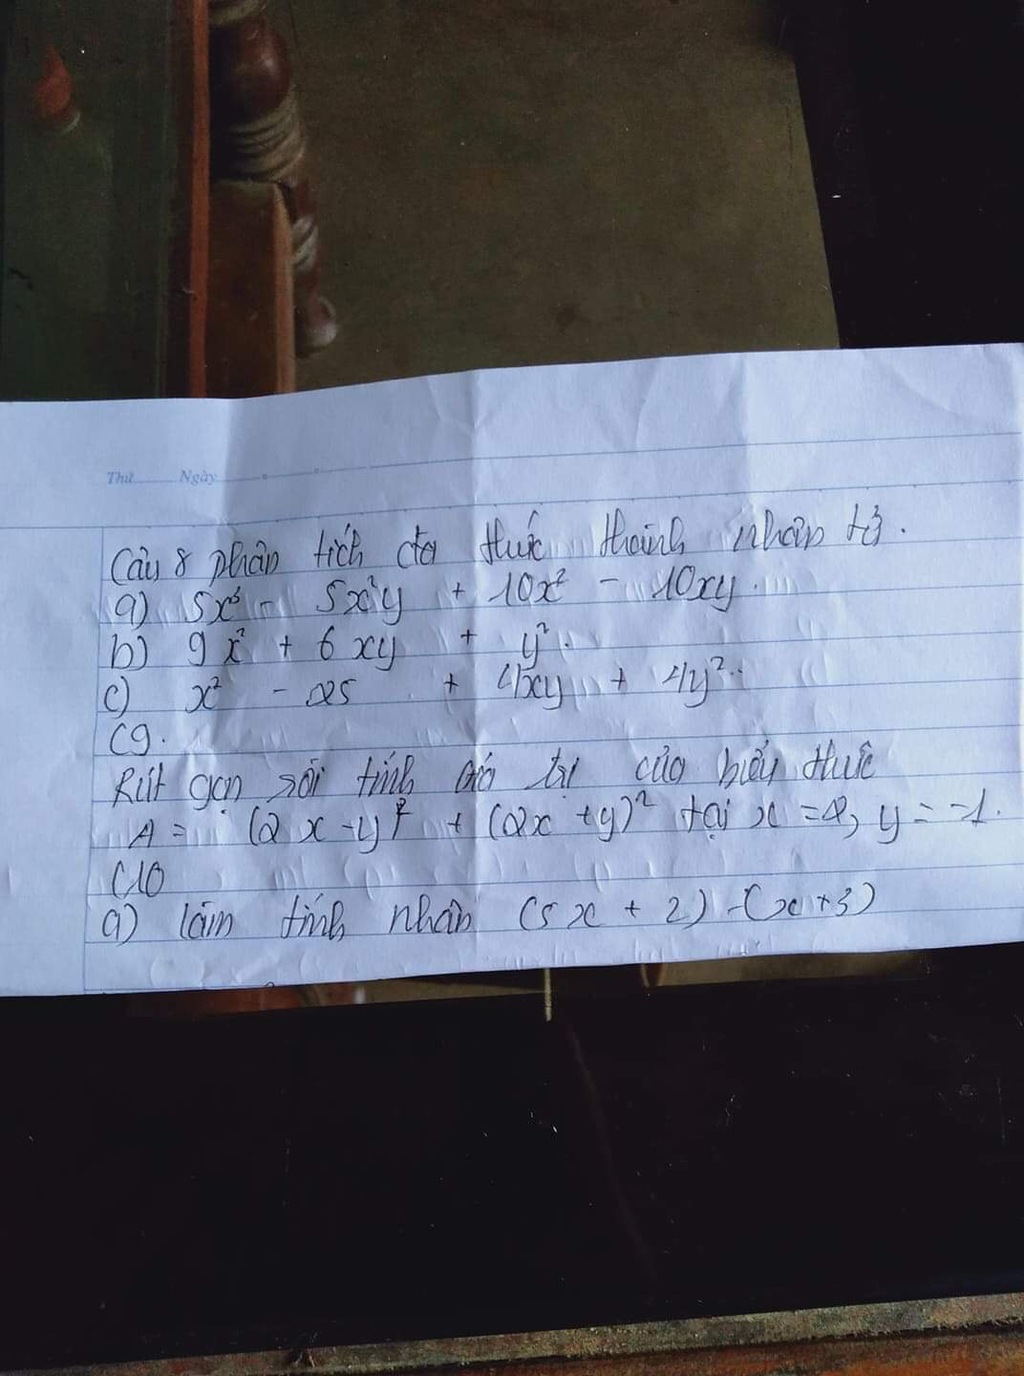 Thứ Ngày
Câu 8 phân tích đa thức thành nhân tử.
a) 5x³ - 5x²y + 10x² - 10xy.
b) 9x² + 6xy + y².
c) x² - 25 + 4xy + 4y².
C9.
Rút gọn rồi tính giá trị của biểu thức
A = (2x - y)² + (2x + y)² tại x = 2, y = -1.
C10
a) làm tính nhân (5x + 2) - (x + 3)